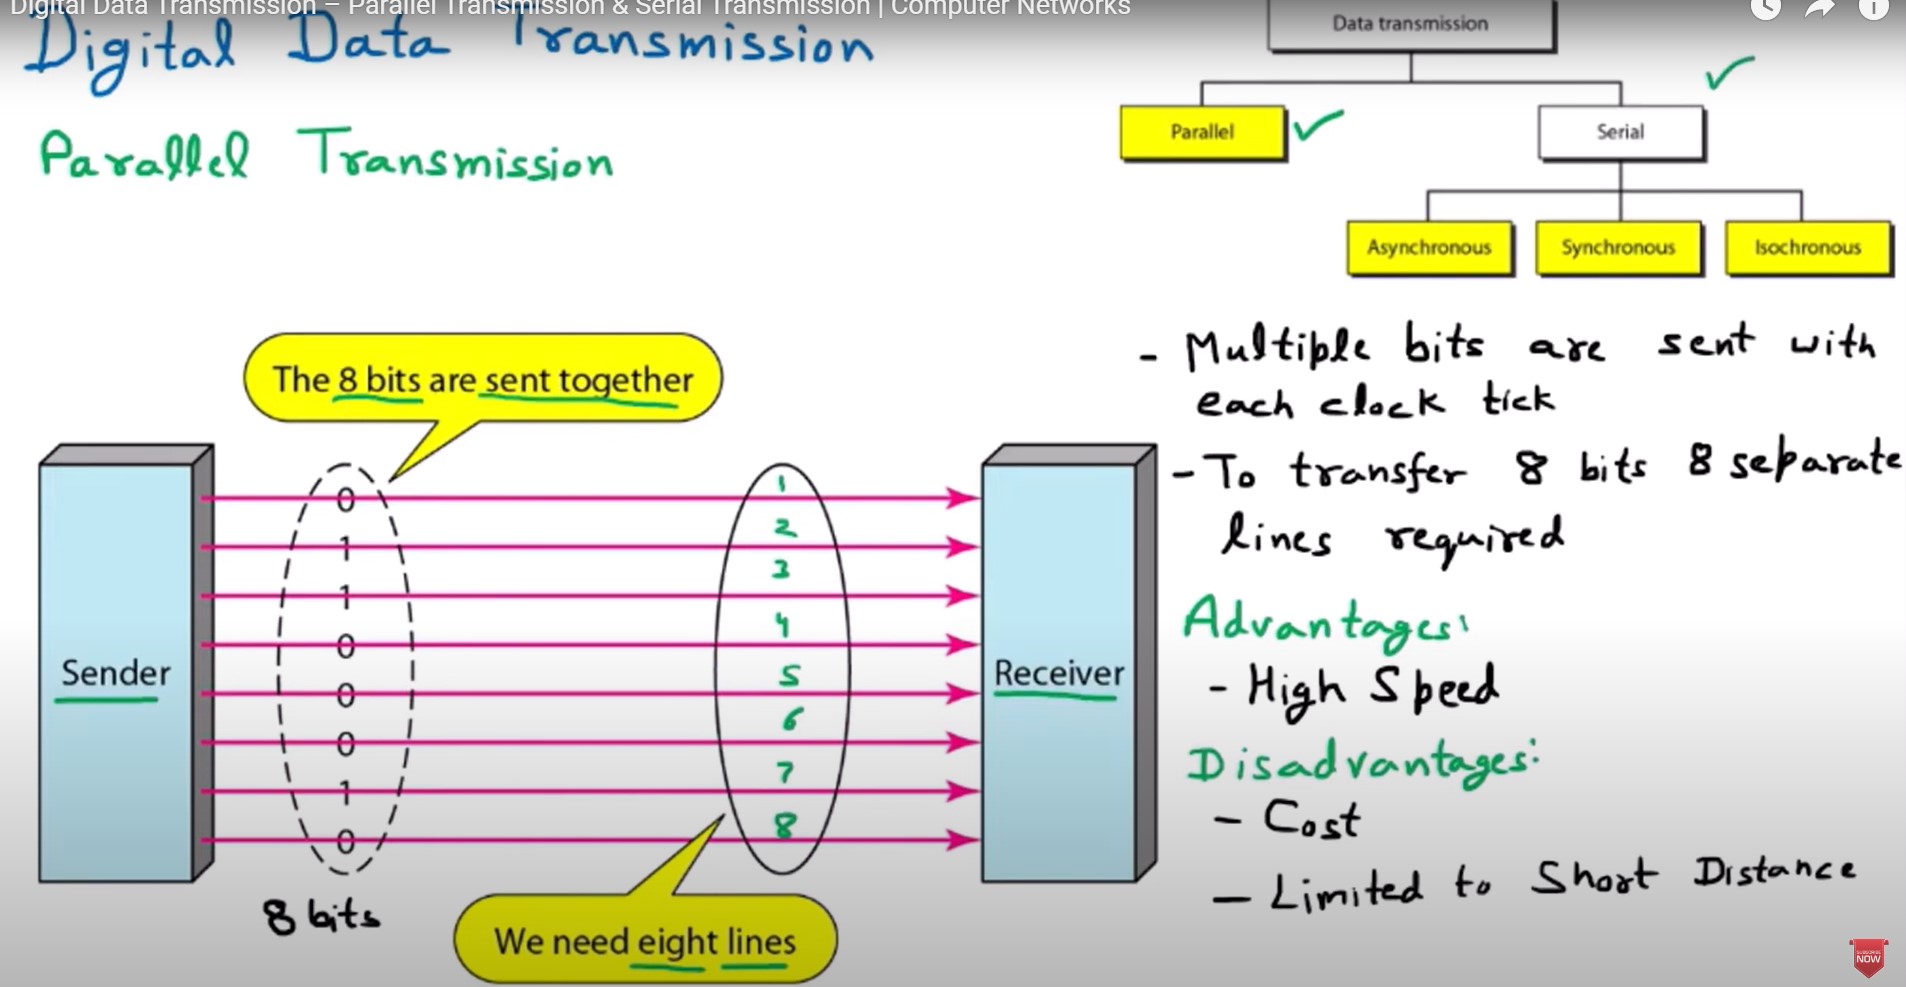 Digital Data Transmission – Parallel Transmission & Serial Transmission | Computer Networks
Digital Data Transmission
Parallel Transmission
Data transmission
Parallel
Serial
Asynchronous
Synchronous
Isochronous
The 8 bits are sent together
Sender
0
1
1
0
0
0
1
0
8 bits
1
2
3
4
5
6
7
8
We need eight lines
Receiver
- Multiple bits are sent with
each clock tick
- To transfer 8 bits 8 separate
lines required
Advantages:
- High Speed
Disadvantages:
- Cost
- Limited to Short Distance
SUBSCRIBE
NOW